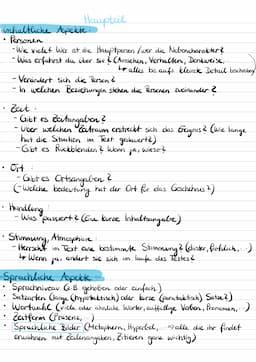 Hauptteil
inhaltliche Aspekte
• Personen
- Wie viele? Wer ist die Hauptperson / wer die Nebencharakter?
- Was erfährst du über sie? (Aussehen, Verhalten, Denkweise
↳ alles bis aufs kleinste Detail beschreiben
- Verändert sich die Person?
- In welchen Beziehungen stehen die Personen zueinander?
• Zeit:
- Gibt es Zeitangaben?
- Über welchen Zeitraum erstreckt sich das Ereignis? (Wie lange
hat die Situation im Text gedauert?)
- Gibt es Rückblenden? Wenn ja, wieso?
• Ort:
- Gibt es Ortsangaben?
(- Welche Bedeutung hat der Ort für das Geschehnis?)
• Handlung:
- Was passiert? (Eine kurze Inhaltsangabe)
• Stimmung, Atmosphäre:
- Herrscht im Text eine bestimmte Stimmung? (düster, fröhlich, ...)
↳ Wenn ja, ändert sie sich im Laufe des Textes?
Sprachliche Aspekte
• Sprachniveau (z.B. gehoben oder einfach)
• Satzarten (lange (hypotaktisch) oder kurze (parataktisch) Sätze?)
• Wortwahl (viele oder ähnliche Wörter, auffällige Verben, Pronomen, ...)
• Zeitform (Präsens, ...)
• Sprachliche Bilder (Metaphern, Hyperbel, ... → alle die ihr findet
erwähnen mit Zeilenangaben, Zitieren ganz wichtig)